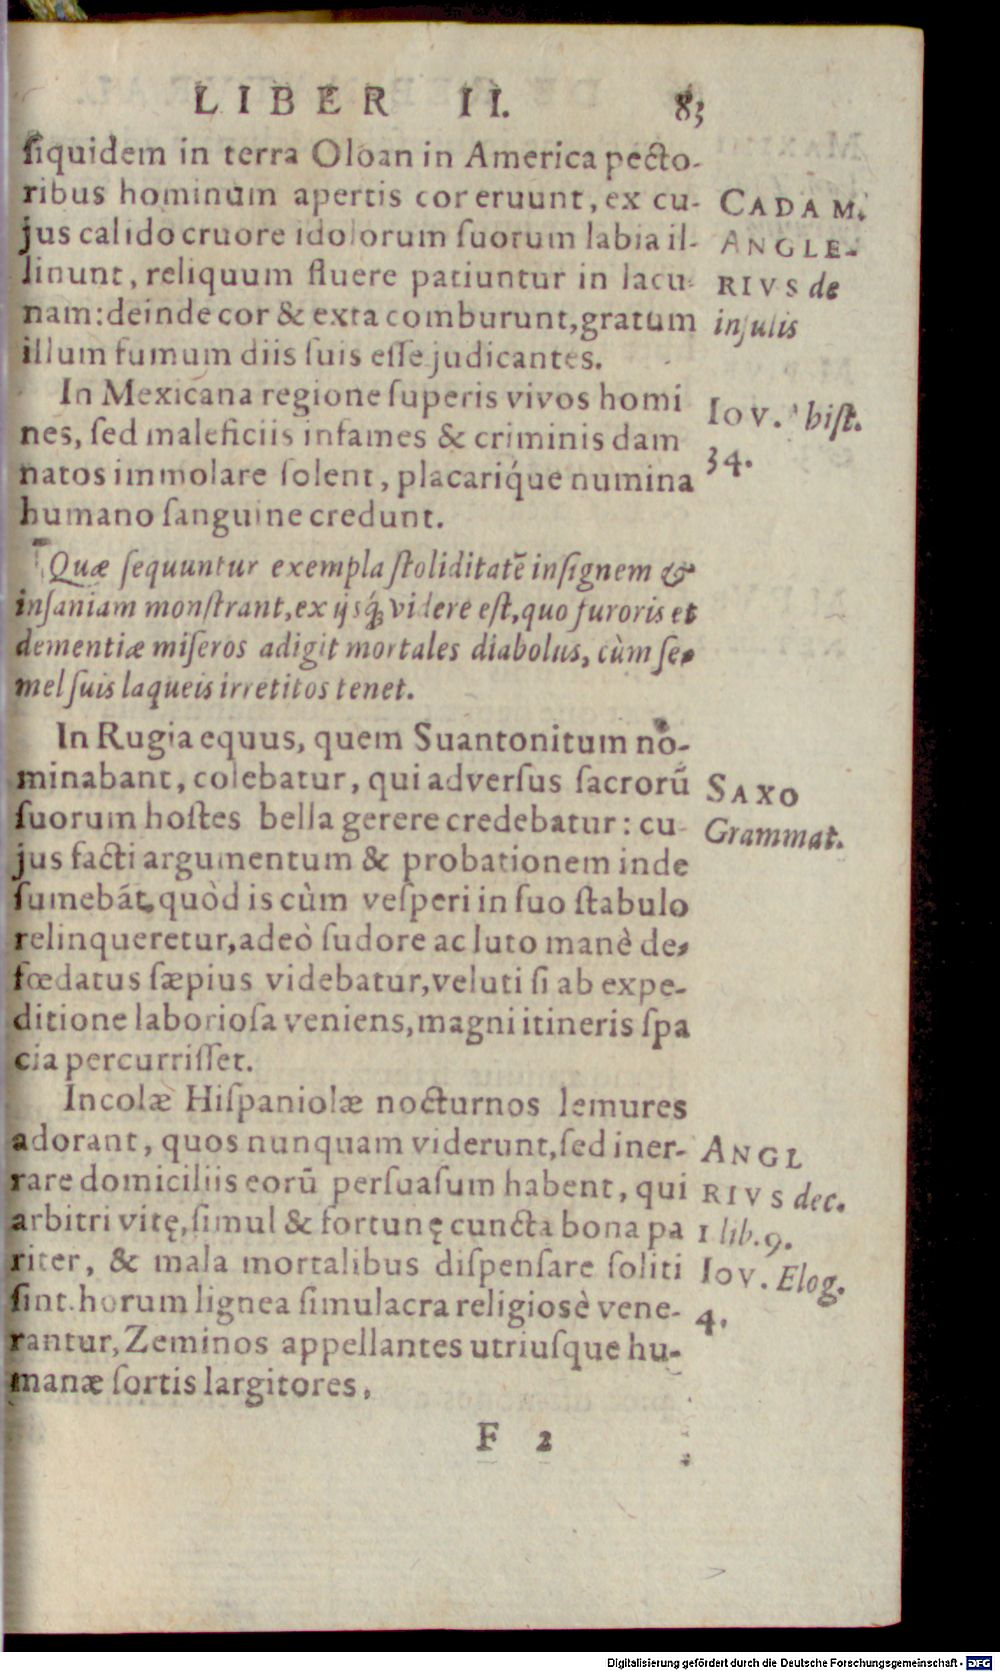 LIBER II. 83
siquidem in terra Oloan in America pecto-
ribus hominum apertis cor eruunt, ex cu-
jus calido cruore idolorum suorum labia il-
linunt, reliquum fluere patiuntur in lacu-
nam: deinde cor & exta comburunt, gratum
illum fumum diis suis esse judicantes.
CADAM.
ANGLE-
RIVS de
insulis
In Mexicana regione superis vivos homi
nes, sed maleficiis infames & criminis dam
natos immolare solent, placariq́ue numina
humano sanguine credunt.
Iov. hist.
34.
Quæ sequuntur exempla stoliditatē insignem &
insaniam monstrant, ex ijsq́; videre est, quo furoris et
dementiæ miseros adigit mortales diabolus, cùm se-
mel suis laqueis irretitos tenet.
In Rugia equus, quem Suantonitum no-
minabant, colebatur, qui adversus sacrorū
suorum hostes bella gerere credebatur: cu-
jus facti argumentum & probationem inde
sumebāt, quòd is cùm vesperi in suo stabulo
relinqueretur, adeò sudore ac luto manè de-
fœdatus sæpius videbatur, veluti si ab expe-
ditione laboriosa veniens, magni itineris spa
cia percurrisset.
SAXO
Grammat.
Incolæ Hispaniolæ nocturnos lemures
adorant, quos nunquam viderunt, sed iner-
rare domiciliis eorū persuasum habent, qui
arbitri vitę, simul & fortunę cuncta bona pa
riter, & mala mortalibus dispensare soliti
sint. horum lignea simulacra religiosè vene-
rantur, Zeminos appellantes utriusque hu-
manæ sortis largitores.
ANGL
RIVS dec.
1 lib. 9.
Iov. Elog.
4.
F 2
Digitalisierung gefördert durch die Deutsche Forschungsgemeinschaft - DFG